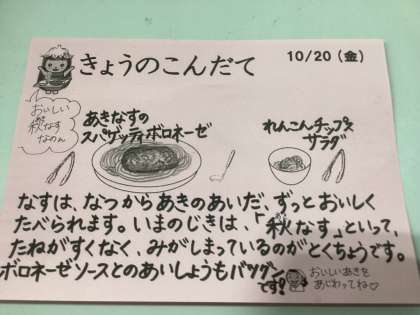 きょうのこんだて
10/20(金)
おいしい
秋なす
なのん
あきなすの
スパゲッティボロネーゼ
れんこんチップス
サラダ
なすは、なつからあきのあいだ、ずっとおいしく
たべられます。いまのじきは、「秋なす」といって、
たねがすくなく、みがしまっているのがとくちょうです。
ボロネーゼソースとのあいしょうもバツグン
です!
おいしいあきを
あじわってね♡